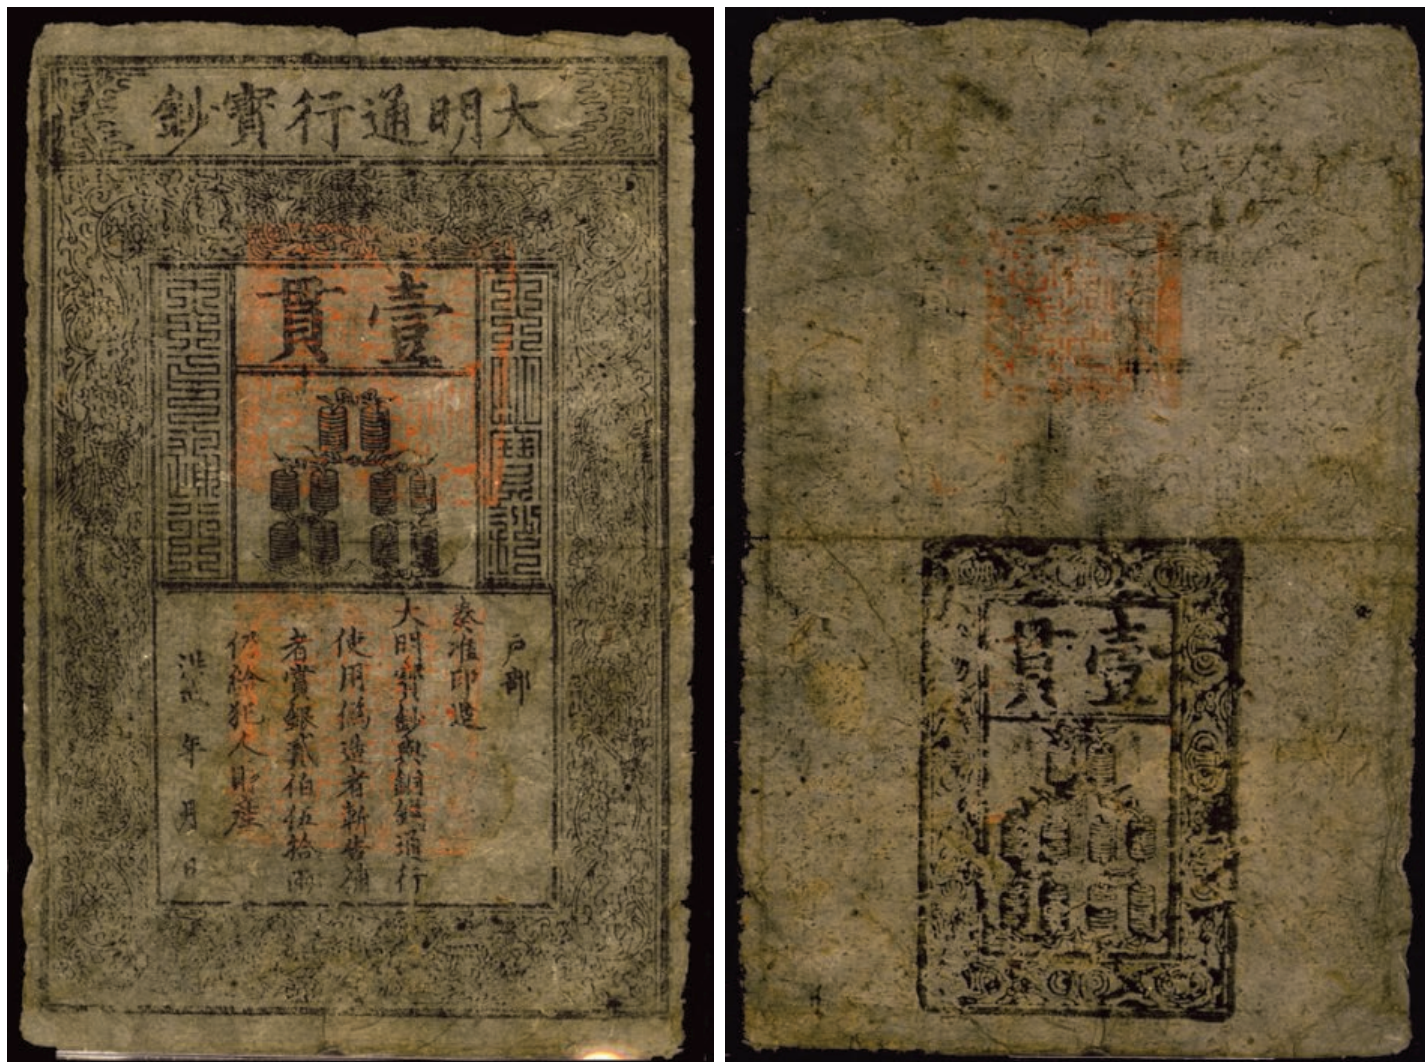 大明通行寶鈔
壹貫
大明寶鈔
天下通行
戶部
奏准印造
大明寶鈔與銅錢通行
使用偽造者斬告捕
者賞銀貳伯伍拾兩
仍給犯人財產
洪武 年 月 日
壹貫